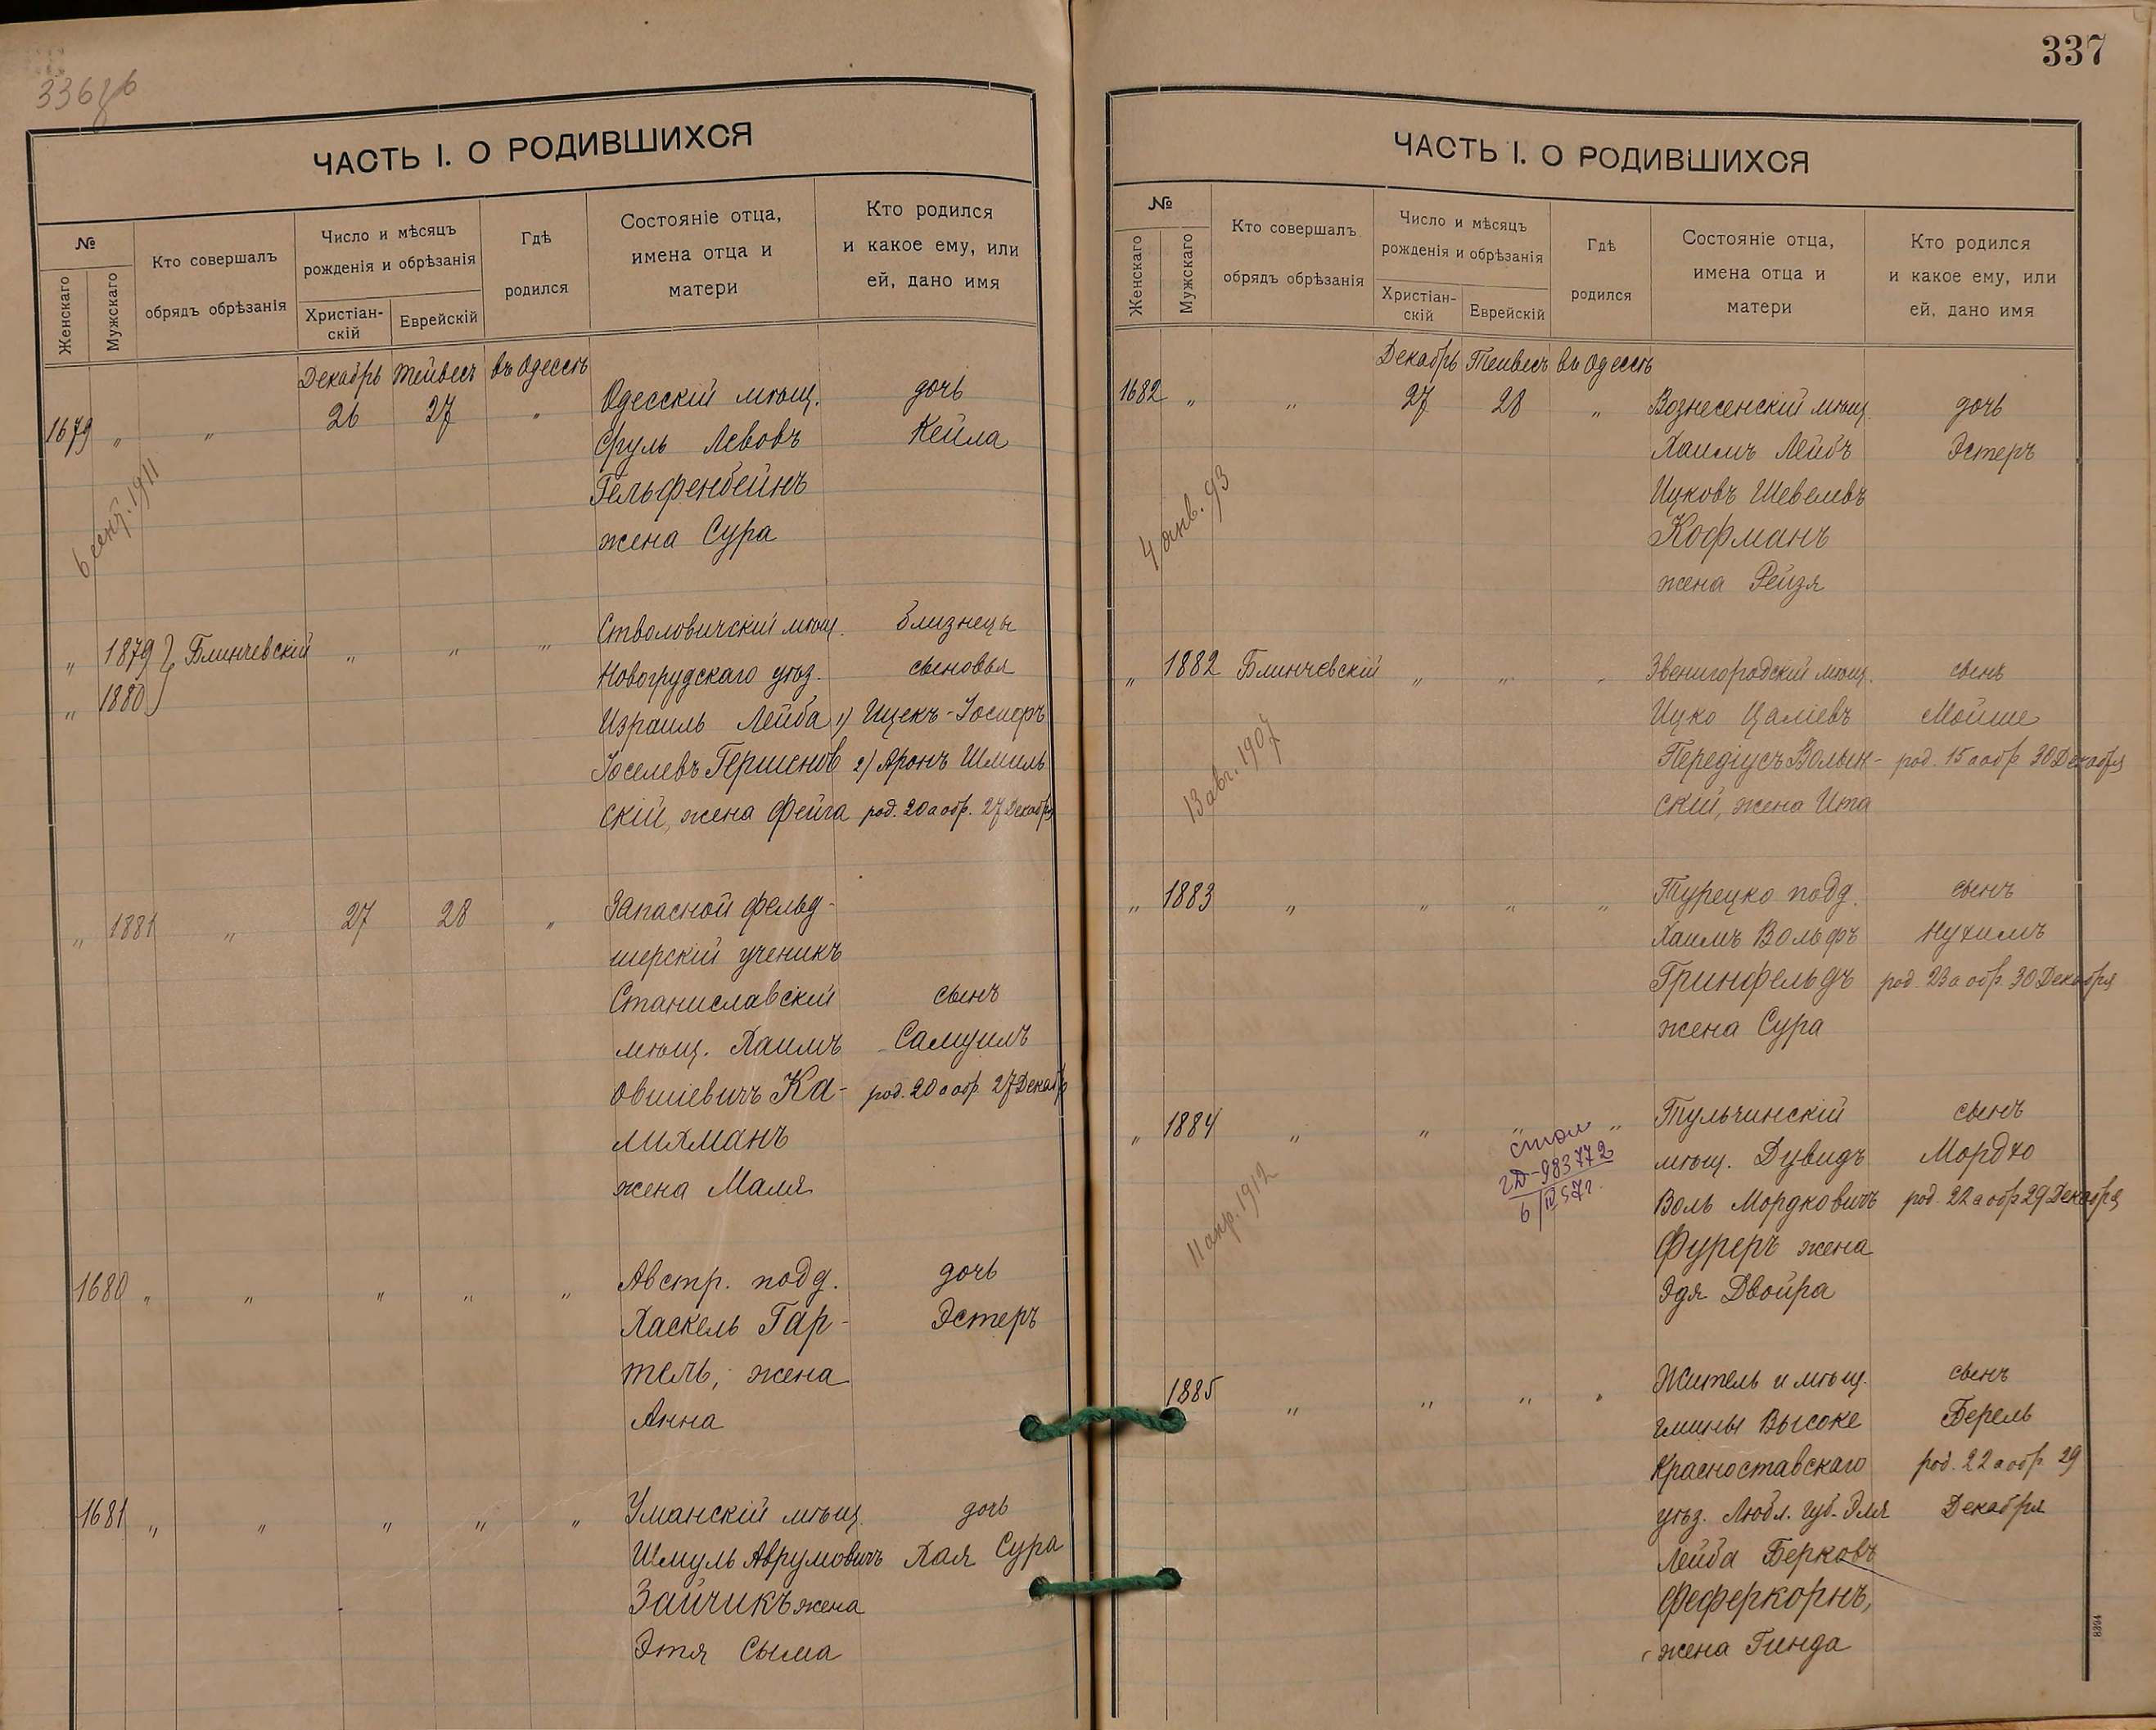 336 об
ЧАСТЬ I. О РОДИВШИХСЯ
№
Женскаго
Мужскаго
Кто совершалъ
обрядъ обрѣзанія
Число и мѣсяцъ
рожденія и обрѣзанія
Христіан-
скій
Еврейскій
Гдѣ
родился
Состояніе отца,
имена отца и
матери
Кто родился
и какое ему, или
ей, дано имя
Декабрь Тейвесъ въ Одессѣ
1679 " " 26 27 " Одесскій мѣщ. дочь
Сруль Левовъ Кейла
Гельфенбейнъ
жена Сура
6 сент. 1911
" 1879 } Блинчевскій " " " Стволовичскій мѣщ. близнецы
" 1880 } Новогрудскаго уѣз. сыновья
Израиль Лейба 1) Ицекъ-Іосифъ
Іоселевъ Гершенов 2) Аронъ Шмиль
скій, жена Фейга род. 20 а обр. 27 Декабря
" 1881 " 27 28 " Запасной фельд-
шерскій ученикъ
Станиславскій сынъ
мѣщ. Хаимъ Самуилъ
Овшіевичъ Ка- род. 20 а обр. 27 Декабр
лихманъ
жена Маля
1680 " " " " " Австр. подд. дочь
Хаскель Гар- Эстеръ
тель, жена
Анна
1681 " " " " " Уманскій мѣщ. дочь
Шмуль Аврумовичъ Хая Сура
Зайчикъ жена
Этя Сыма
337
ЧАСТЬ I. О РОДИВШИХСЯ
№
Женскаго
Мужскаго
Кто совершалъ
обрядъ обрѣзанія
Число и мѣсяцъ
рожденія и обрѣзанія
Христіан-
скій
Еврейскій
Гдѣ
родился
Состояніе отца,
имена отца и
матери
Кто родился
и какое ему, или
ей, дано имя
Декабрь Тейвесъ въ Одессѣ
1682 " " 27 28 " Вознесенскій мѣщ. дочь
Хаимъ Лейбъ Эстеръ
Ицковъ Шевелевъ
Кофманъ
жена Рейзя
4 янв. 93
" 1882 Блинчевскій " " " Звенигородскій мѣщ. сынъ
Ицко Цаліевъ Мойше
Передіусъ Волын- род. 15 а обр 30 Декабря
скій, жена Ита
13 авг. 1907
" 1883 " " " " Турецко подд. сынъ
Хаимъ Вольфъ Нухимъ
Гринфельдъ род. 23 а обр. 30 Декабря
жена Сура
" 1884 " " " " Тульчинскій сынъ
мѣщ. Дувидъ Мордхо
Воль Мордковичъ род. 22 а обр 29 Декабря
Фуреръ жена
Эдя Двойра
11 апр. 1912
стол
2Д-983772
6/IV 57г.
1885 " " " " Житель и мѣщ. сынъ
гмины Высоке Берель
Красноставскаго род. 22 а обр. 29
уѣз. Любл. губ. Эля Декабря
Лейба Берковъ
Феферкорнъ,
жена Гинда